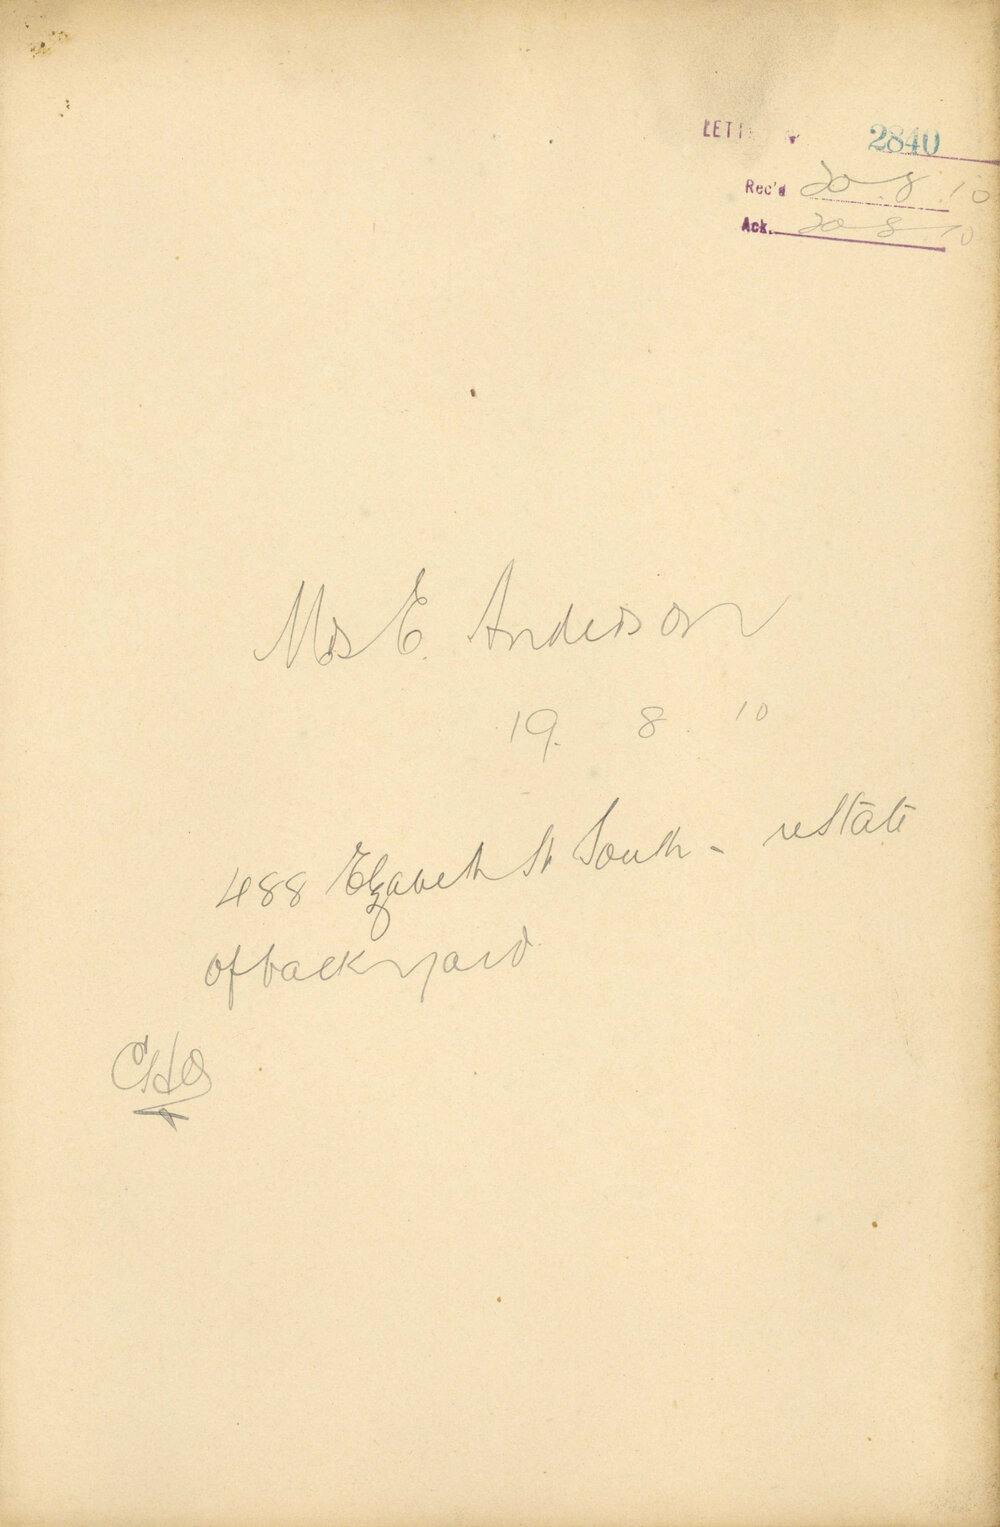 2840
Rec'd 20 8 10
Ack. 20 8 10
Mrs E. Anderson
19. 8. 10
488 Elizabeth St South - re State
of back yard